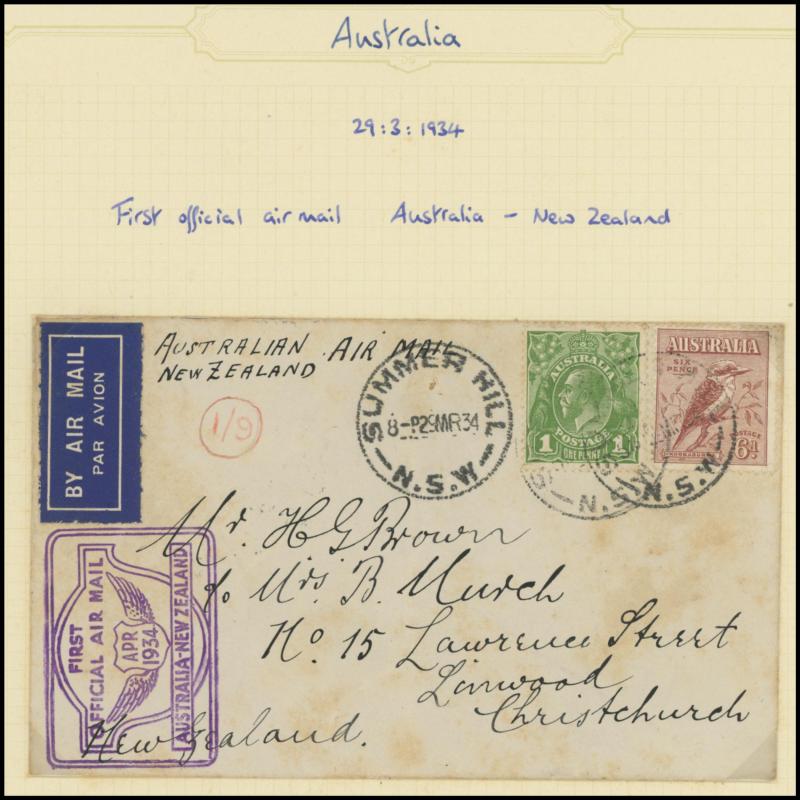 Australia
29:3:1934
First official air mail Australia - New Zealand
BY AIR MAIL
PAR AVION
AUSTRALIAN AIR MAIL
NEW ZEALAND
1/9
SUMMER HILL
8-P29MR34
N.S.W
AUSTRALIA
1 POSTAGE 1
ONE PENNY
AUSTRALIA
SIX
PENCE
POSTAGE
KOOKABURRA
6D
N.S.W
N.S.W
Mr. H G Brown
c/o Mrs B. Murch
No. 15 Lawrence Street
Linwood
Christchurch
New Zealand.
FIRST
OFFICIAL AIR MAIL
APR
1934
AUSTRALIA-NEW ZEALAND